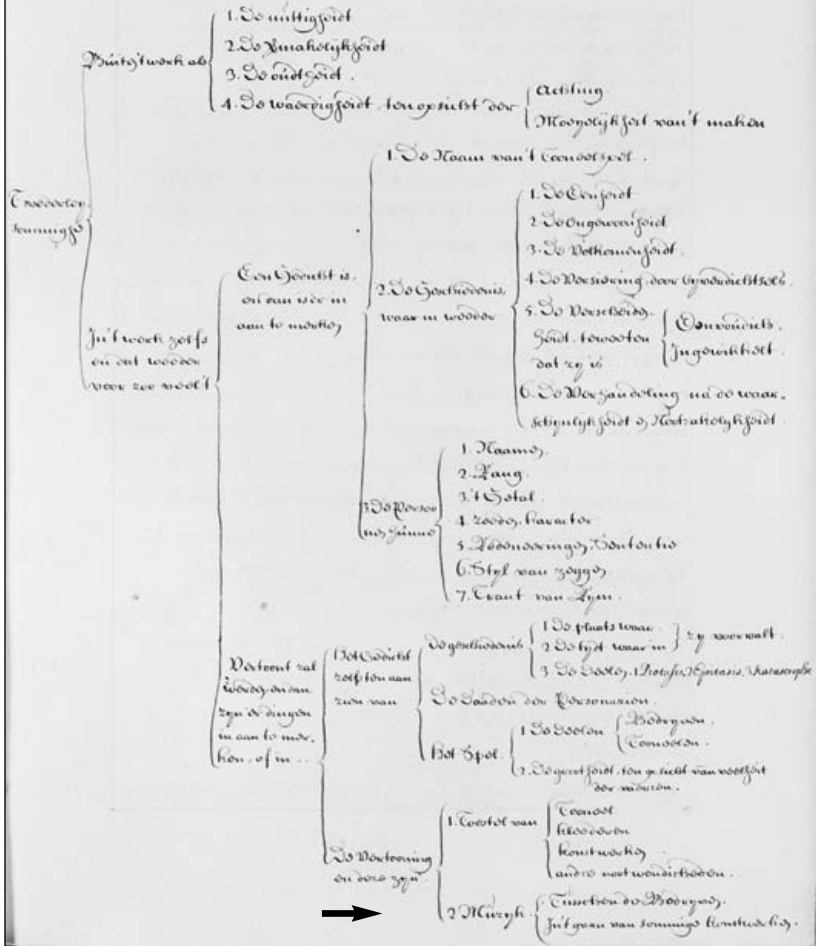 Buite't werk als
1. De nuttigheidt
2. De Vmakelijkheidt
3. De oudtheidt.
4. De waerdigheidt, ten opsicht der
Achting
Moeyelijkheit van't maken
Tweederley
In't werk zelfs
en dat weeder
voor zoo veel't
Een Gedicht is,
en dan is er in
aan te merken
1. De Naam van't Tooneelspel.
2. De Geschiedenis,
waar in weeder
1. De Eenheidt
2. De Ongewoonheidt
3. De Volkomenheidt.
4. De Versiering, door byverdichtsels.
5. De Verscheiden-
heidt, te weeten
dat zy is
Eenvoudich
Ingewikkelt.
6. De Verhandeling na de waar-
schynlykheidt en Nootsakelykheidt.
3. De Persoo
nen, hunne
1. Naamen,
2. Rang.
3. 't Getal.
4. zeeden, karacter
5. Redeneeringen, Sententie
6. Styl van zeggen,
7. Trant van Rym.
Vertoont zal
werden, en dan
zyn er dingen
in aan te mer-
ken, of in ..
Het Gedicht
zelfs ten aan
zien van
De geschiedenis
1 De plaats waar.
2 De tydt waar in
zy voorvalt.
3 De Deelen, 1 Protasis, 2 Epitasis, 3 Katastrophe
De Daaden der Personazien.
Het Spel.
1 De Deelen
Bedryven.
Tooneelen.
2. De grootheidt, ten gesicht van veelheit
der vaerzen.
De Vertooning
en deze zyn
1. Toestel van
Tooneel
kleederen
konstwerken
andre nootwendicheden.
2 Muzyk.
Tusschen de Bedryven.
In't gaan van sommige konstwerken.